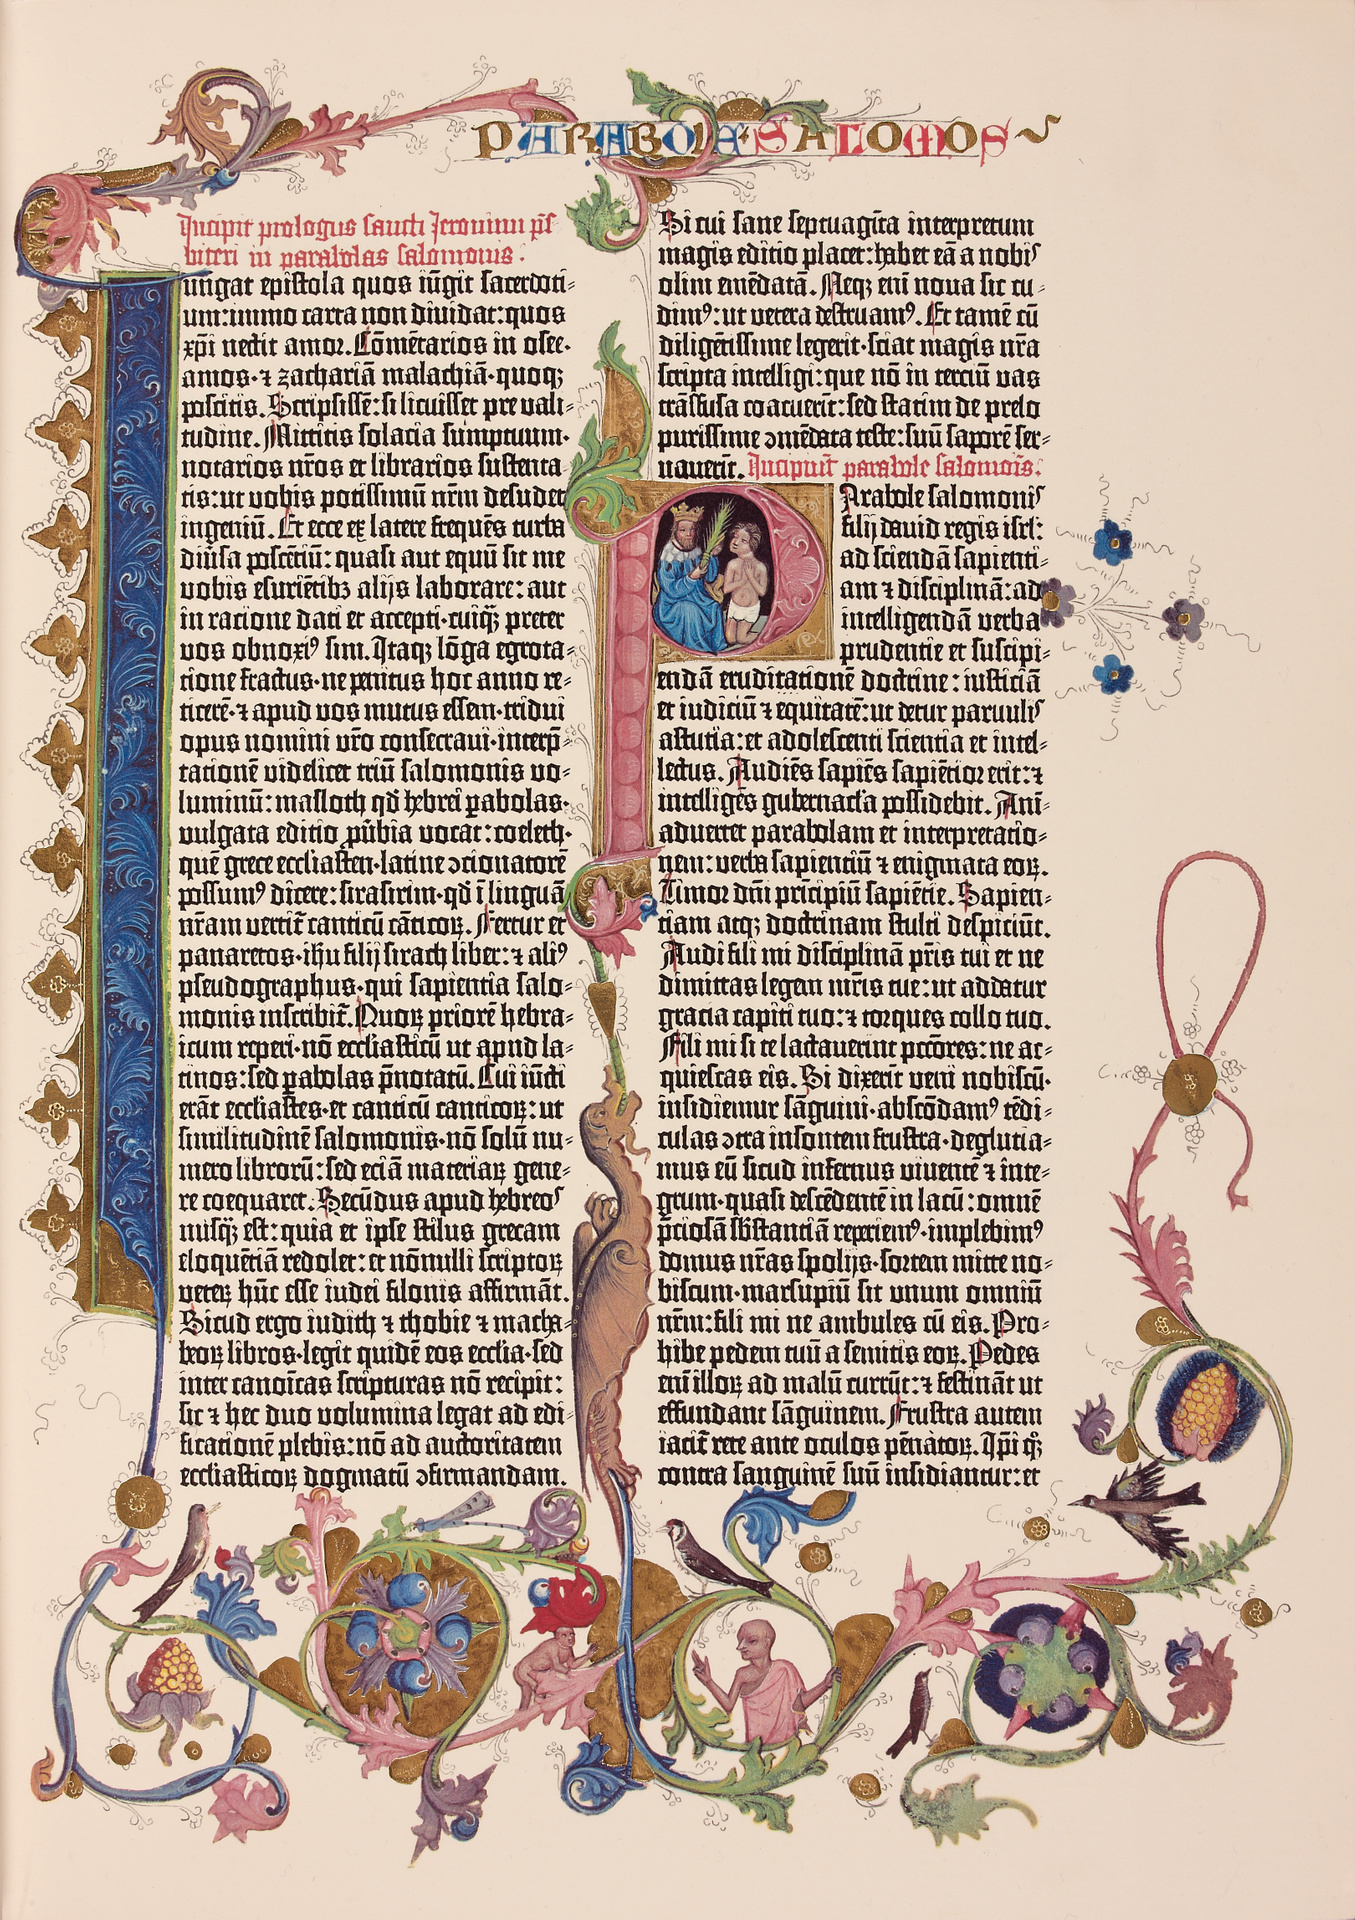 PARABOLAE SALOMOS
Incipit prologus sancti Jeronimi p̄s
biteri in parabolas salomonis.
Iungat epistola quos iūgit sacerdoti-
um: immo carta non diuidat: quos
xp̄i nectit amor. Cōmētarios in osee.
amos. ⁊ zachariā malachiā. quoqȝ
poscitis. Scripsissē: si licuisset pre vali-
tudine. Mittitis solacia sumptuum.
notarios nr̄os et librarios sustenta-
tis: ut vobis potissimū nr̄m desudet
ingeniū. Et ecce ex latere frequēs turba
diūsa poscētiū: quasi aut equū sit me
vobis esurientibȝ alijs laborare: aut
in ratione dati et accepti. cuiqȝ preter
vos obnoxiꝰ sim. Itaqȝ lōga egrota-
tione fractus. ne penitus hoc anno re-
ticerē. ⁊ apud vos mutus essem. tridui
opus nomini vr̄o consecraui. interp̄-
tationē videlicet triū salomonis vo-
luminū: masloth qd̄ hebrei ꝑabolas.
vulgata editio ꝓūbia vocat: coeleth.
quē grece eccl̄iasten. latine ↄcionatorē
possumꝰ dicere: sirasirim. qd̄ ī linguā
nr̄am vertit̄ canticū cāticoꝝ. Fertur et
panaretos. ih̄u filij sirach liber: ⁊ aliꝰ
pseudographus. qui sapientia salo-
monis inscribit̄. Quoꝝ priorē hebra-
icum reperi. nō eccl̄iasticū ut apud la-
tinos: sed ꝑabolas p̄notatū. Cui iūcti
erāt eccl̄iastes. et canticū canticoꝝ: ut
similitudinē salomonis. nō solū nu-
mero librorū: sed eciā materiaꝝ gene-
re coequaret. Secūdus apud hebreos
nusqȝ est: quia et ip̄se stilus grecam
eloquētiā redolet: et nōnulli scriptoꝝ
veteꝝ hūc esse iudei filonis affirmāt.
Sicud ergo iudith ⁊ thobie ⁊ macha-
beoꝝ libros. legit quidē eos eccl̄ia. sed
inter canoīcas scripturas nō recipit:
sic ⁊ hec duo volumina legat ad edi-
ficationē plebis: nō ad auctoritatem
eccl̄iasticoꝝ dogmatū ↄfirmandam.
Si cui sane septuagīta interpretum
magis editio placet: habet eā a nobis
olim emēdatā. Neqȝ enī noua sic cu-
dimꝰ: ut vetera destruamꝰ. Et tamē cū
diligētissime legerit. sciat magis nr̄a
scripta intelligi: que nō in terciū vas
trāsfusa coacuerīt: sed statim de prelo
purissime ↄmēdata teste: suū saporē ser-
uauerīt. Incipiūt parabole salomōis.
Parabole salomonis
filij dauid regis isrl̄:
ad sciendā sapienti-
am ⁊ disciplinā: ad
intelligendā verba
prudentie et suscipi-
endā eruditationē doctrine: iusticiā
et iudiciū ⁊ equitatē: ut detur paruulis
astutia: et adolescenti scientia et intel-
lectus. Audiēs sapiēs sapiētior erit: ⁊
intelligēs gubernacl̄a possidebit. Anī-
aduertet parabolam et interpretatio-
nem: verba sapientiū ⁊ enigmata eoꝝ.
Timor dn̄i prīcipiū sapiētie. Sapien-
tiam atqȝ doctrinam stulti despiciūt.
Audi fili mi disciplinā pr̄is tui et ne
dimittas legem mr̄is tue: ut addatur
gracia capiti tuo: ⁊ torques collo tuo.
Fili mi si te lactauerint pctōres: ne ac-
quiescas eis. Si dixerīt veni nobiscū.
insidiemur sāguini. abscōdamꝰ tēdi-
culas ↄtra insontem frustra. deglutia-
mus eū sicud infernus viuentē ⁊ īte-
grum. quasi descēdentē in lacū: omnē
p̄ciosā sb̄stantiā reperiemꝰ. implebimꝰ
domus nr̄as spolijs. sortem mitte no-
biscum. marsupiū sit unum omniū
nr̄m: fili mi ne ambules cū eis. Pro-
hibe pedem tuū a semitis eoꝝ. Pedes
enī illoꝝ ad malū currūt: ⁊ festināt ut
effundant sāguinem. Frustra autem
iacit̄ rete ante oculos pēnatoꝝ. Ip̄i qȝ
contra sanguinē suū insidiantur: et